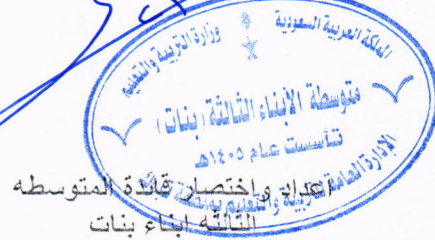 المملكة العربية السعودية
وزارة التربية والتعليم
متوسطة الأبناء الثالثة (بنات)
تأسست عام ١٤٠٥هـ
الإدارة العامة للتربية والتعليم بمنطقة
إعداد واختصار قائدة المتوسطه
الثالثه ابناء بنات